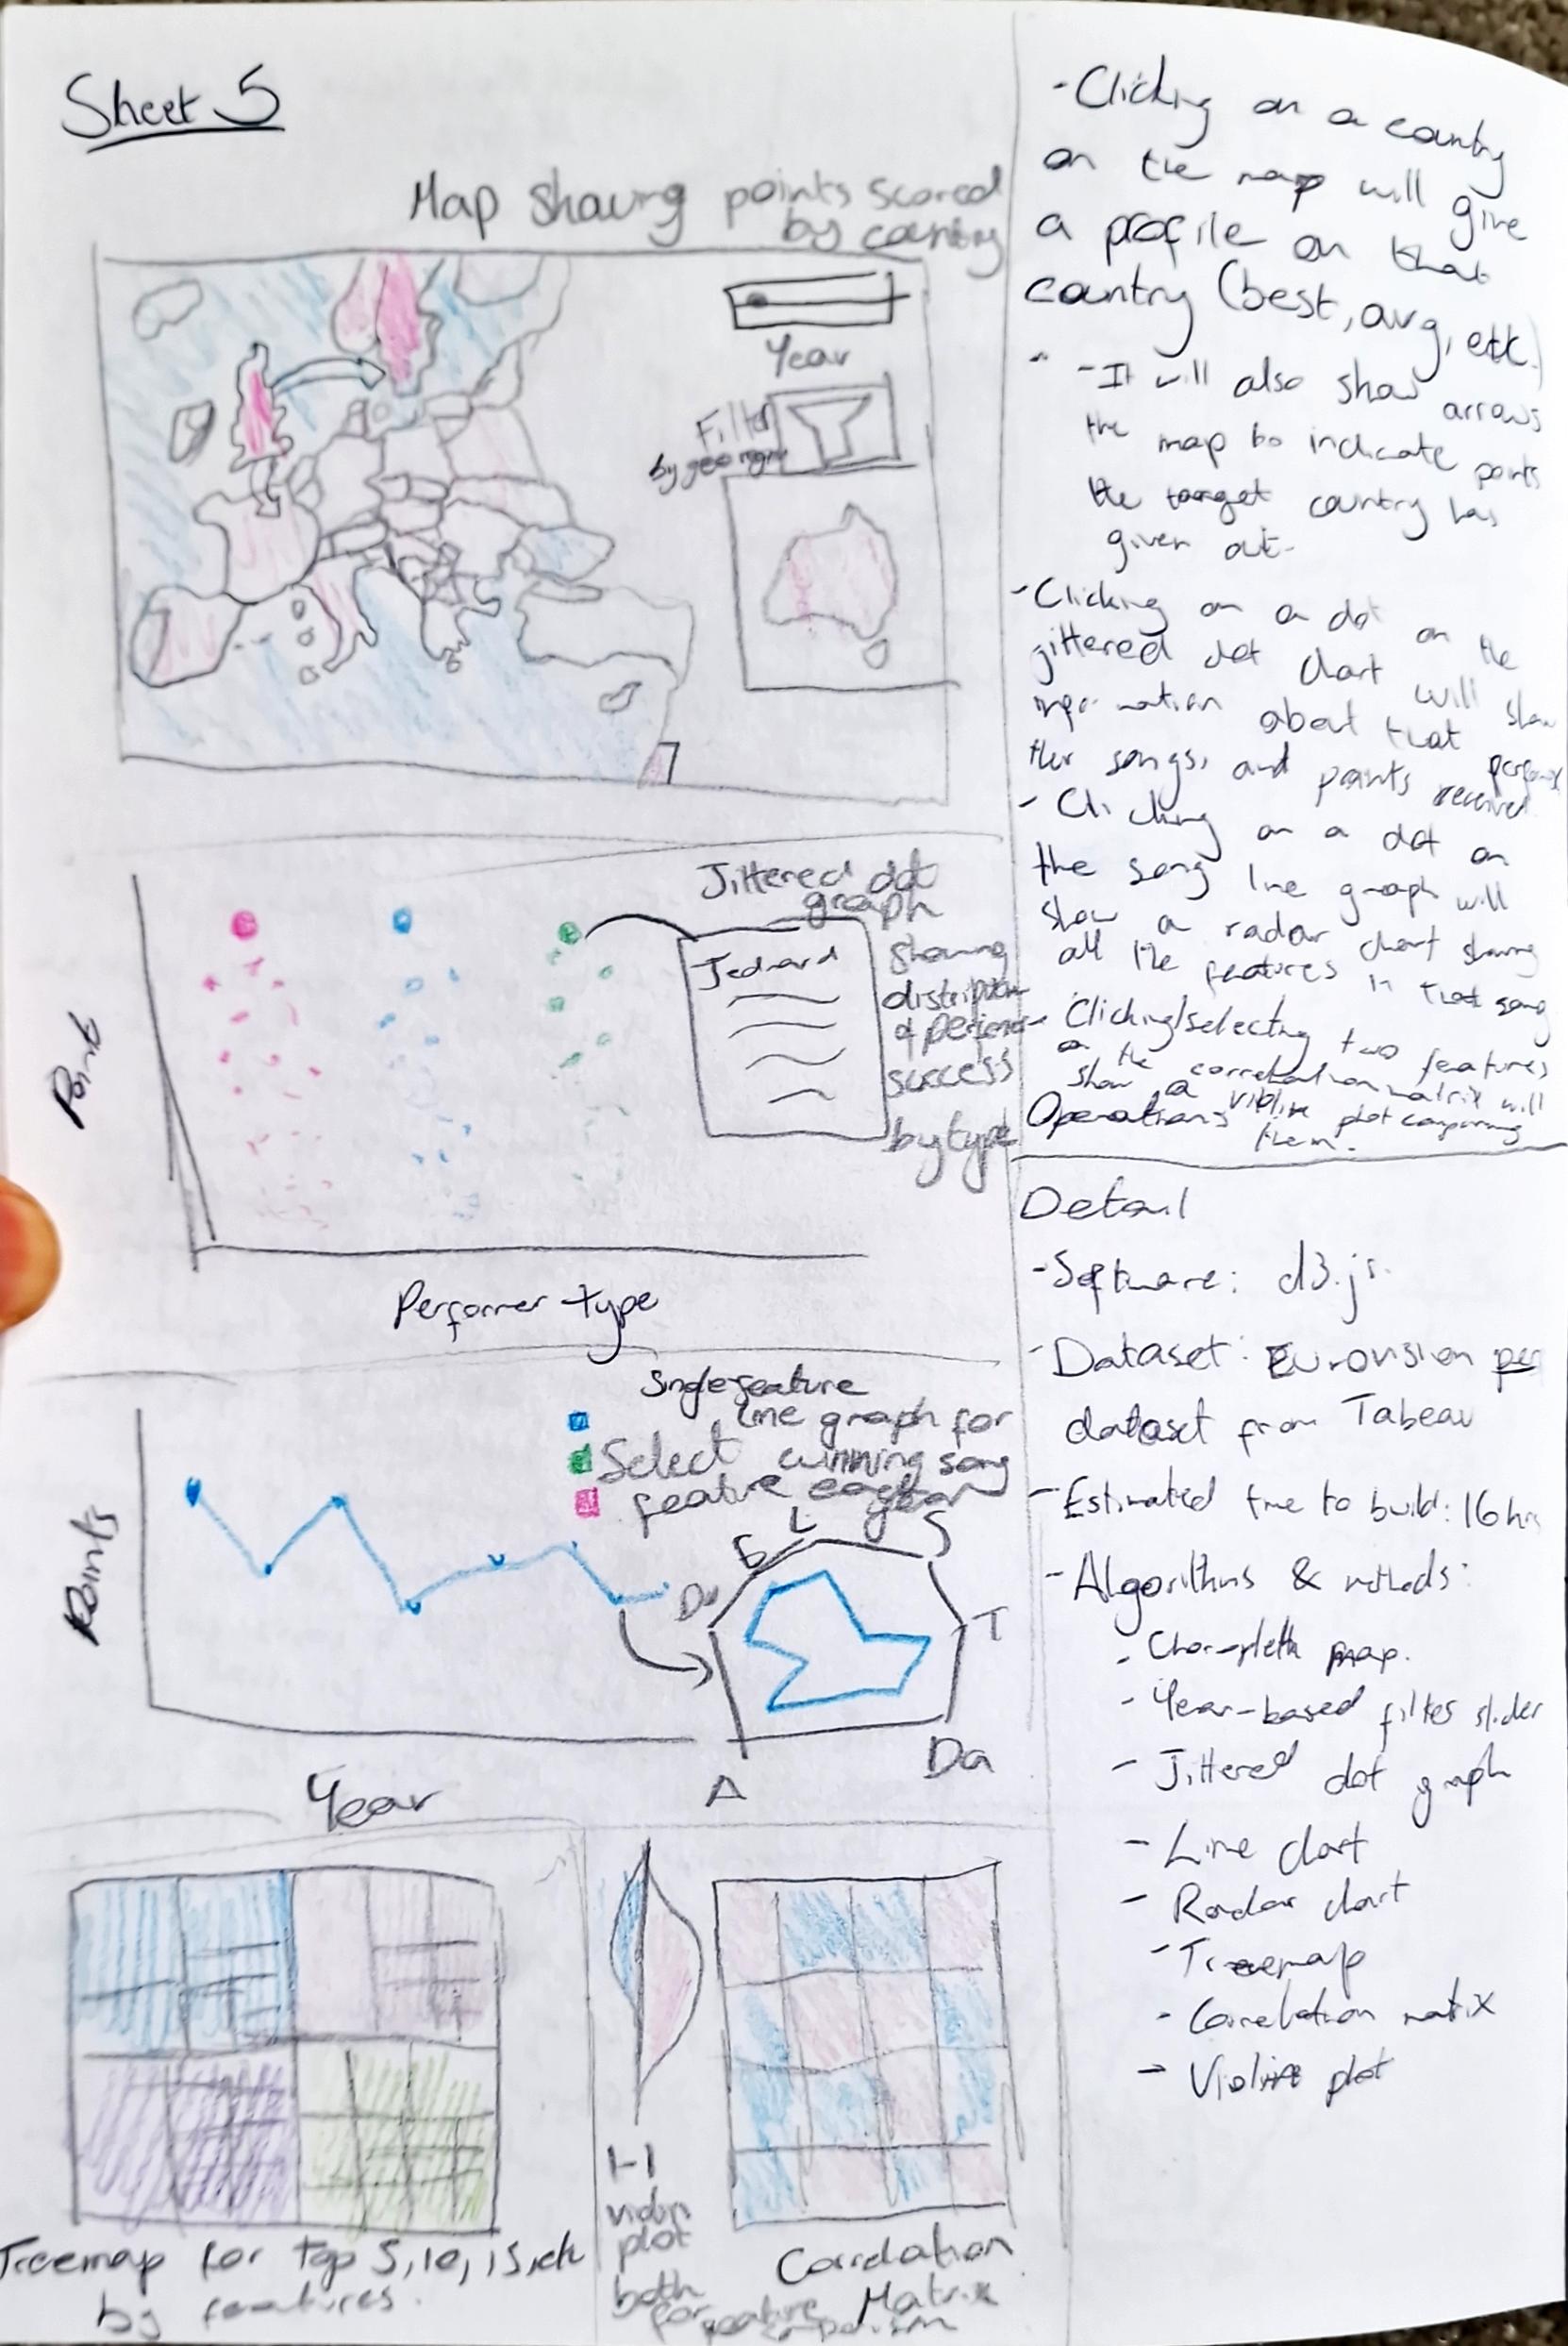 Sheet 5
Map showing points scored
by country
Year
Filter
by geography
Jittered dot
graph
showing
distribution
of performer
success
by type
Jedward
Points
Performer type
Single feature
line graph for
Select winning song
feature each year
Points
Year
Du
E
L
S
T
Da
A
Treemap for top 5, 10, 15, etc
by features.
1-1
violin
plot
both
for feature
comparison
Correlation
Matrix
- Clicking on a country
on the map will give
a profile on that
country (best, avg, etc.)
- It will also show arrows
the map to indicate points
the target country has
given out.
- Clicking on a dot on the
jittered dot chart will show
information about that
their songs, and points received
- Clicking on a dot on
the song line graph will
show a radar chart showing
all the features in that song
- Clicking/selecting two features
on the correlation matrix will
show a violin plot comparing
them.
Operations
Detail
- Software: d3.js.
- Dataset: Eurovision
dataset from Tabeau
- Estimated time to build: 16 hrs
- Algorithms & methods:
- Choropleth map.
- Year-based filter slider
- Jittered dot graph
- Line chart
- Radar chart
- Treemap
- Correlation matrix
- Violin plot